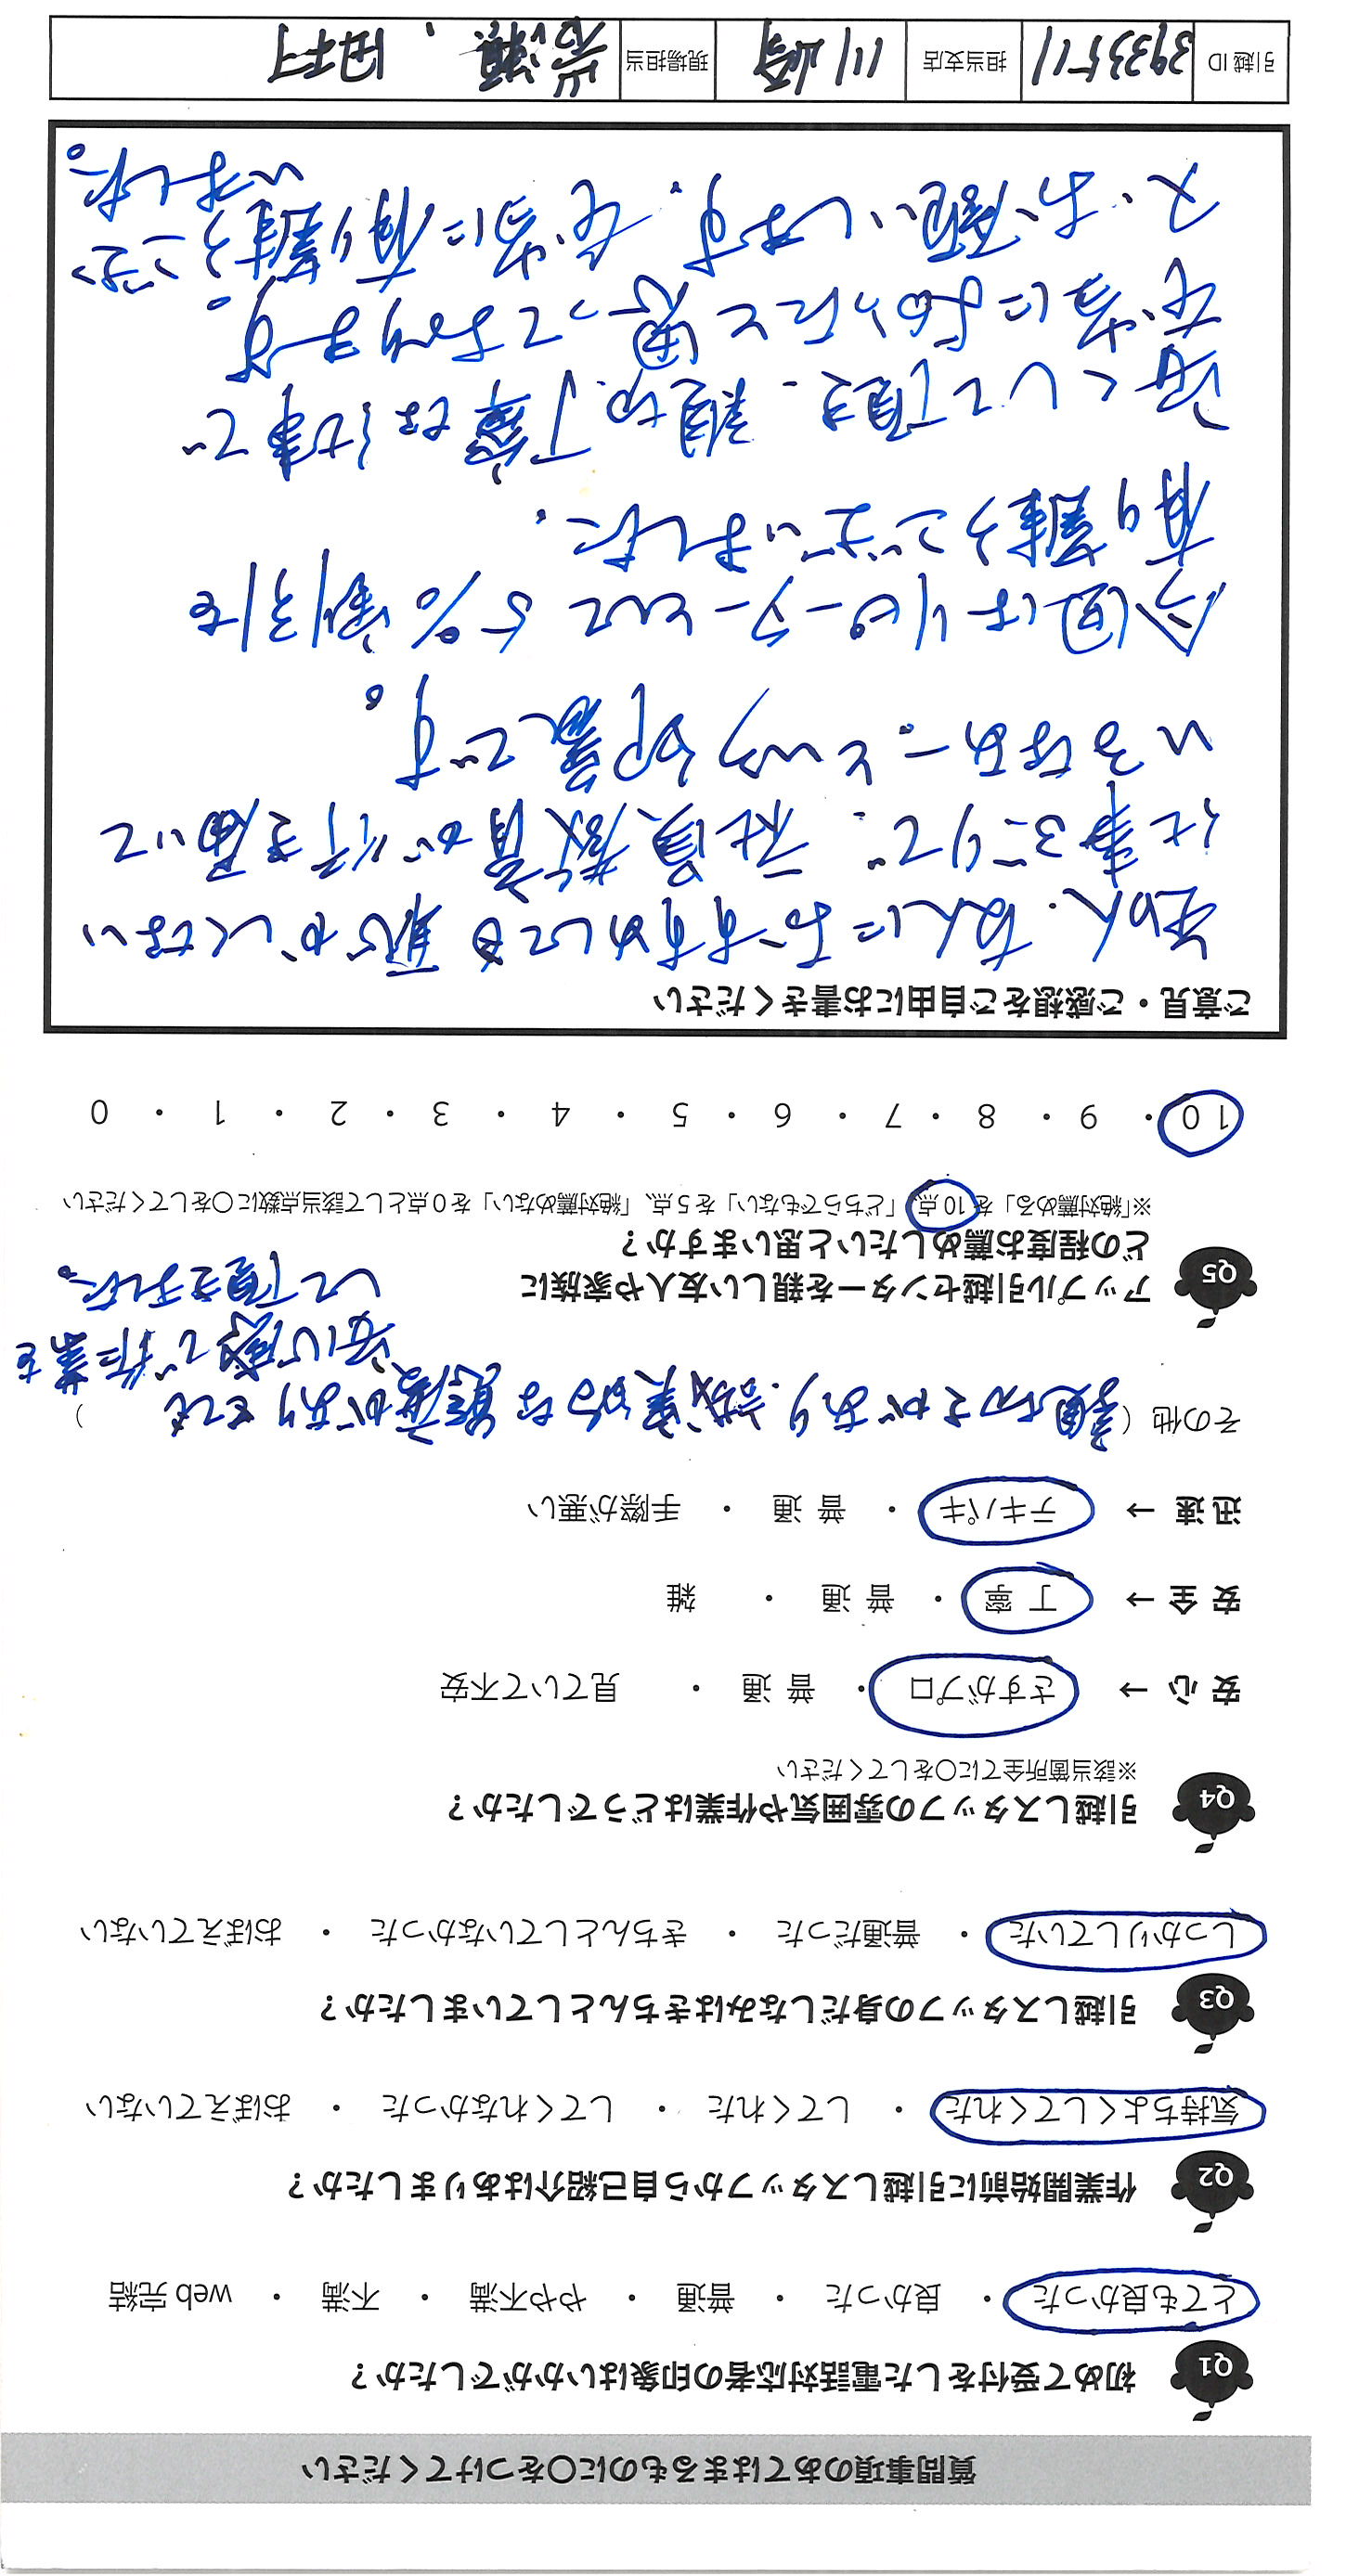 質問事項のあてはまるものに〇をつけてください
Q1 初めて受付をした電話対応者の印象はいかがでしたか？
とても良かった ・ 良かった ・ 普通 ・ やや不満 ・ 不満 ・ web 完結
Q2 作業開始前に引越しスタッフから自己紹介はありましたか？
気持ちよくしてくれた ・ してくれた ・ してくれなかった ・ おぼえていない
Q3 引越しスタッフの身だしなみはきちんとしていましたか？
しっかりしていた ・ 普通だった ・ きちんとしていなかった ・ おぼえていない
Q4 引越しスタッフの雰囲気や作業はどうでしたか？
※該当箇所全てに〇をしてください
安 心 → さすがプロ ・ 普 通 ・ 見ていて不安
安 全 → 丁 寧 ・ 普 通 ・ 雑
迅 速 → テキパキ ・ 普 通 ・ 手際が悪い
その他（ 親切さがあり、誠実的な態度がありとても ）
安心感で作業を
して頂きました。
Q5 アップル引越センターを親しい友人や家族に
どの程度お薦めしたいと思いますか？
※「絶対薦める」を 10 点、「どちらでもない」を 5 点、「絶対薦めない」を 0 点として該当点数に〇をしてください
10 ・ 9 ・ 8 ・ 7 ・ 6 ・ 5 ・ 4 ・ 3 ・ 2 ・ 1 ・ 0
ご意見・ご感想をご自由にお書きください
友人におすすめしても恥しくない
仕事ぶりで、社員教育が行き届いて
いるなあーという印象です。
今回はリピーターとして 5％割引を
有り難うございました。
して頂き、親切、丁寧な仕事で
幸せにおもったと思っております。
又、お願いします。本当に有り難うござ
いました。
引越 ID 3933571 担当支店 川崎 現場担当 岩瀬、田村